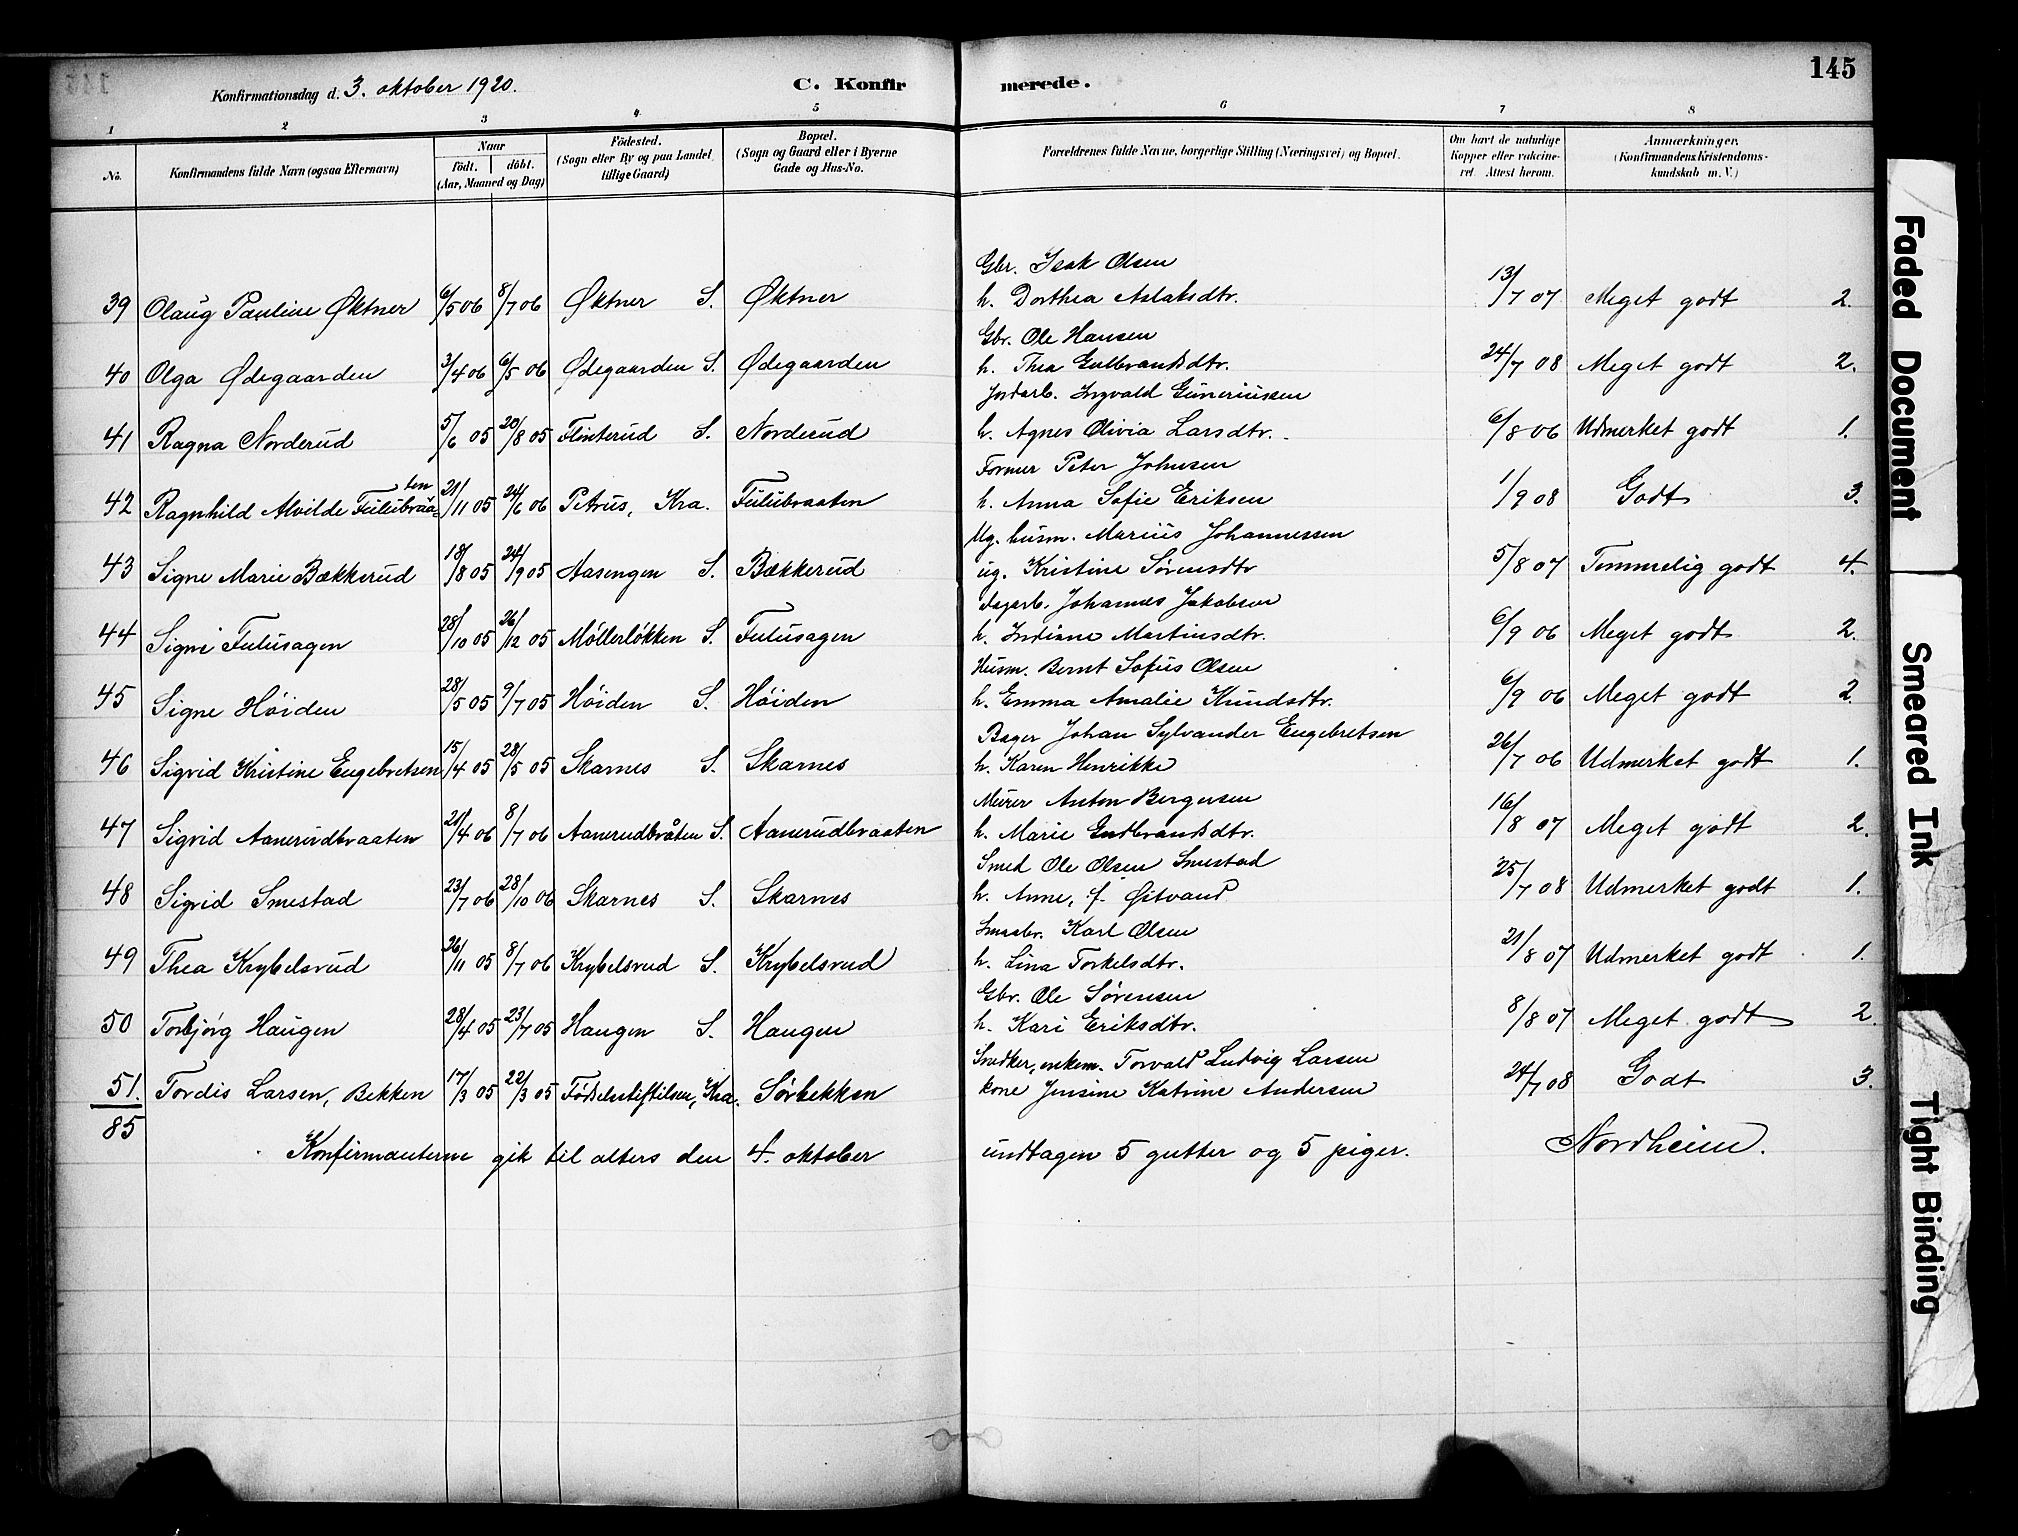 145
Konfirmationsdag d. 3. oktober 1920.
C. Konfirmerede.
1 2 3 4 5 6 7 8
No.
Konfirmandens fulde Navn (ogsaa Efternavn)
Naar
født. døbt.
(Aar, Maaned og Dag)
Fødested.
(Sogn eller By og paa Landet
tillige Gaard)
Bopæl.
(Sogn og Gaard eller i Byerne
Gade og Hus-No.
Forældrenes fulde Navne, borgerlige Stilling (Næringsvei) og Bopæl.
Om havt de naturlige
Kopper eller vakcine-
ret. Attest herom.
Anmærkninger.
(Konfirmandens Kristendoms-
kundskab m. V.)
Gbr. Isak Olsen
39 Olaug Pauline Øktner 6/5 06 8/7 06 Øktner S. Øktner h. Dorthea Aslaksdtr. 13/7 07 Meget godt 2.
Gbr. Ole Hansen
40 Olga Ødegaarden 3/4 06 6/5 06 Ødegaarden S. Ødegaarden h. Thea Gulbrandsdtr. 24/7 08 Meget godt 2.
Jordarb. Ingvald Guneriussen
41 Ragna Norderud 5/6 05 20/8 05 Flinterud S. Norderud h. Agnes Olivia Larsdtr. 6/8 06 Udmerket godt 1.
Former Peter Johnsen
42 Ragnhild Alvilde Fulubraaten 21/11 05 24/6 06 Petrus, Kra. Fulubraaten h. Anna Sofie Eriksen 1/9 08 Godt 3.
Ug. husm. Marius Johannessen
43 Signe Marie Bækkerud 18/8 05 24/9 05 Aasengen S. Bækkerud ug. Kristine Sørensdtr 5/8 07 Temmelig godt 4.
Dagarb. Johannes Jakobsen
44 Signe Fulusagen 28/10 05 26/12 05 Møllerløkken S. Fulusagen h. Indiane Martinsdtr. 6/9 06 Meget godt 2.
Husm. Bernt Sofus Olsen
45 Signe Høiden 28/5 05 9/7 05 Høiden S. Høiden h. Emma Amalie Knudsdtr. 6/9 06 Meget godt 2.
Bager Johan Sylvander Engebretsen
46 Sigrid Kristine Engebretsen 15/4 05 28/5 05 Skarnes S. Skarnes h. Karen Henrikke 26/7 06 Udmerket godt 1.
Murer Anton Bergersen
47 Sigrid Aanerudbraaten 21/4 06 8/7 06 Aanerudbråten S. Aanerudbraaten h. Marie Gudbrandsdtr. 16/8 07 Meget godt 2.
Smed Ole Olsen Smestad
48 Sigrid Smestad 23/7 06 28/10 06 Skarnes S. Skarnes h. Anne, f. Østvand 25/7 08 Udmerket godt 1.
Smaabr. Karl Olsen
49 Thea Krybelsrud 26/11 05 8/7 06 Krybelsrud S. Krybelsrud h. Lina Torkelsdtr. 21/8 07 Udmerket godt 1.
Gbr. Ole Sørensen
50 Torbjørg Haugen 28/4 05 23/7 05 Haugen S. Haugen h. Kari Eriksdtr. 8/8 07 Meget godt 2.
Snedker, enkem. Torvald Ludvig Larsen
51. Tordis Larsen, Bekken 17/3 05 22/3 05 Fødselsstiftelsen, Kra. Sørbekken kone Jensine Katrine Andersen 24/7 08 Godt 3.
85
Konfirmanterne gik til alters den 4. oktober undtagen 5 gutter og 5 piger. Nordheim.
Faded Document
Smeared Ink
Tight Binding